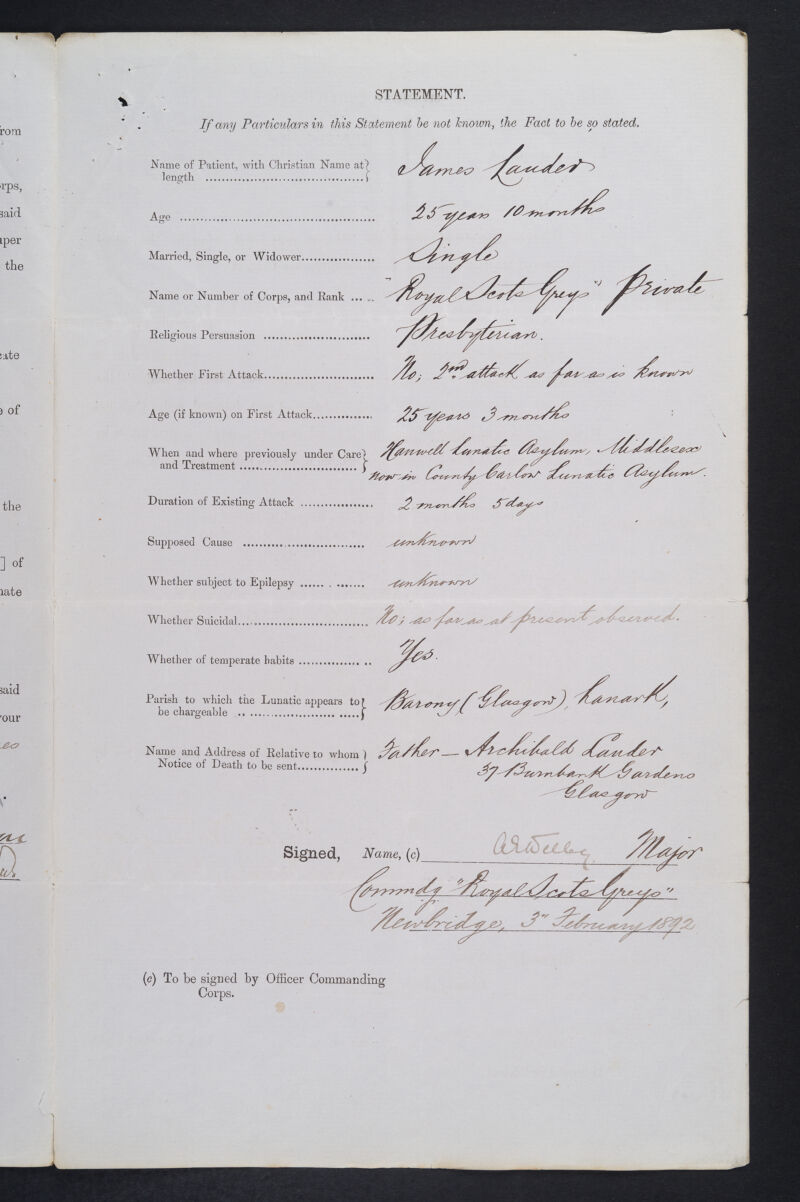 rom
rps,
said
aper
the
cate
e of
the
] of
nate
said
your
STATEMENT.
If any Particulars in this Statement be not known, the Fact to be so stated.
Name of Patient, with Christian Name at length James Lauder
Age 25 years 10 months
Married, Single, or Widower Single
Name or Number of Corps, and Rank "Royal Scots Greys" Private
Religious Persuasion Presbyterian.
Whether First Attack No; 2nd attack as far as is known
Age (if known) on First Attack 25 years 3 months
When and where previously under Care Hanwell Lunatic Asylum, Middlesex
and Treatment now in County Carlow Lunatic Asylum.
Duration of Existing Attack 2 months 5 days
Supposed Cause unknown
Whether subject to Epilepsy unknown
Whether Suicidal No; as far as at present observed.
Whether of temperate habits Yes.
Parish to which the Lunatic appears to be chargeable Barony (Glasgow), Lanark,
Name and Address of Relative to whom Father — Archibald Lauder
Notice of Death to be sent 37 Burnbank Gardens
Glasgow
Signed, Name, (c) Major
Commdg "Royal Scots Greys"
Newbridge, 3" February 1892
(c) To be signed by Officer Commanding
Corps.